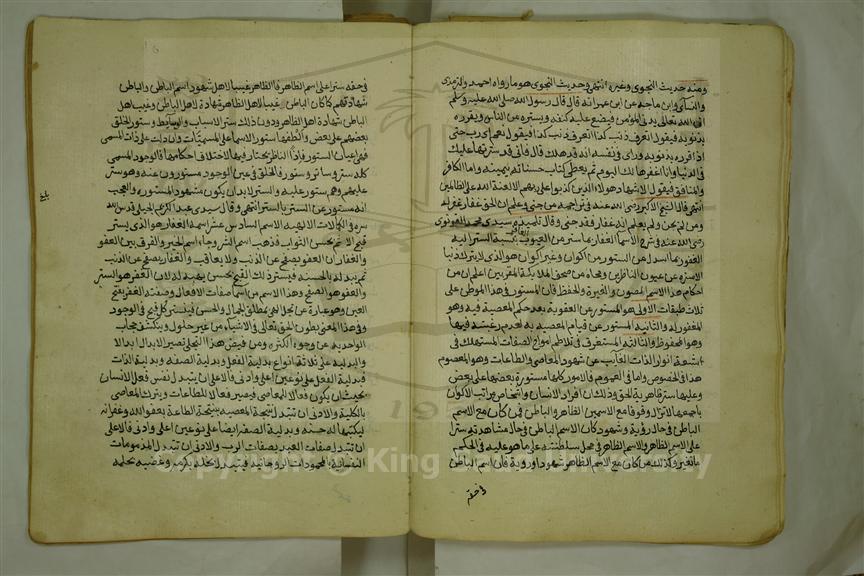 ومنه حديث النجوى وغيره انتهى وحديث النجوى هو ما رواه احمد والترمذى
والنسائى وابن ماجه عن ابن عمر انه قال قال رسول الله صلى الله عليه وسلم
ان الله تعالى يدنى المؤمن فيضع عليه كنفه ويستره من الناس ويقرره
بذنوبه فيقول اتعرف ذنب كذا اتعرف ذنب كذا فيقول نعم اى رب حتى
اذا قرره بذنوبه وراى فى نفسه انه قد هلك قال فانى قد سترتها عليك
فى الدنيا وانا اغفرها لك اليوم ثم يعطى كتاب حسناته بيمينه واما الكافر
والمنافق فيقول الاشهاد هولاء الذين كذبوا على ربهم الا لعنة الله على الظالمين
انتهى قال الشيخ الاكبر رضى الله عنه فى تراجمه من جنى وعلم ان الحق غفار غفر له
ومن لم يجن ولم يعلم انه غفار فقد جنى وقال تلميذه سيدى محمد القونوى
رضى الله عنه فى شرح الاسما الغفار بما ستر من العيوب
الغفور بما اسدل من الستور من اكوان وغير اكوان هو الذى لا يترك ذنبا
الا ستره عن عيون الناظرين ومحاه من صحف الملايكة المقربين اعلم ان من
احكام هذا الاسم المصون والغيرة والحفظ فان المستور فى هذا الموطن على
ثلاث طبقات الاولى هو المستور من العقوبة بعد حكم المعصية فيه وهو
المغفور له والثانية المستور عن قيام المعصية به لعدم فيها
وهو المحفوظ والثالثة المستغرق فى تلاطم امواج الصفات المستهلك فى
اشعة انوار الذات الغايب عن شهود المعاصى والطاعات وهو المعصوم
هذا فى الخصوص واما فى العموم والامور كلها مستورة بعضها على بعض
وعليها ستر قاهرية الحق وذلك ان افراد الانسان واشخاص مراتب الاكوان
باجمعها لا تزال وقوفا مع الاسمين الظاهر والباطن فمن كان مع الاسم
الباطن فى حال رؤية وشهود كان الاسم الباطن فى حال مشاهدته سترا
على الاسم الظاهر والاسم الظاهر فى محل سلطنته على ما هو عليه فى الحكم
ما تغير وكذلك من كان مع الاسم الظاهر شهودا ورؤية فان اسم الباطن
فى حقه
فى حقه سترا على اسم الظاهر فالظاهر غيب لاهل شهود اسم الباطن والباطن
شهادتهم كما كان الباطن غيبا لاهل الظاهر شهادة لاهل الباطن وغيب اهل
الباطن شهادة اهل الظاهر ودون ذلك ستر الاسباب والوسايط وستور الخلق
بعضهم على بعض والطفها ستور الاسما على المسميات وان دلت على ذات المسمى
فهى اعيان الستور فاذا الناظر يحتار فيها لاختلاف احكامها فالوجود المسمى
كله ستر وساتر ومستور فالخلق فى عين الوجود مستورون عنه وهو ستر
عليهم وهم ستور عليه والستر لا بد ان يكون مشهود المستور والعجب
انه مستور عن الستر بالستر انتهى وقال سيدى عبد الكريم الجيلى قدس الله
سره فى الكمالات الالهية الاسم السادس عشر اسمه الغفار هو الذى يستر
قبح الاثم بحسن الثواب فذهب اسم الشر وجاء اسم الخير والفرق بين العفو
والغفار ان العفو يصفح عن الذنب ولا يعاقب والغفار يصفح عن الذنب
ثم يبدله بالحسنه فيستر ذلك القبح بحسن يهبه له لان الغفر هو الستر
والعفو هو الصفح وهذا الاسم من اسما صفات الافعال وصفته الغفر بفتح
الغين وهو عبارة عن تجل الهى بمطلق الجمال والحسن فيستر كل قبح فى الوجود
وفى هذا المعنى بطون الحق تعالى فى الاشياء من غير حلول وينكشف حجاب
الواحدية عن وجوه الكثرة ومن فيض هذا التجلى تصير الابدال ابدالا
والبدلية على ثلاثة انواع بدلية الفعل وبدلية الصفة وبدلية الذات
فبدلية الفعل على نوعين اعلى وادنى فالاعلى ان يتبدل نفس فعل الانسان
بحيث ان يكون فعالا للمعاصى فيصير فعالا للطاعات ويترك المعاصى
بالكلية والادنى ان تتبدل نتيجة المعصيه بنتيجة الطاعة بعفو الله وغفرانه
ليكتبها له حسنه وبدلية الصفة ايضا على نوعين اعلى وادنى فالاعلى
ان تتبدل صفات العبد بصفات الرب والادنى ان تتبدل المذمومات
النفسانية بالمحمودات الروحانية فيتبدل بخله بكرم وغضبه بحلمه
بلغ
Copyright © King Saud University